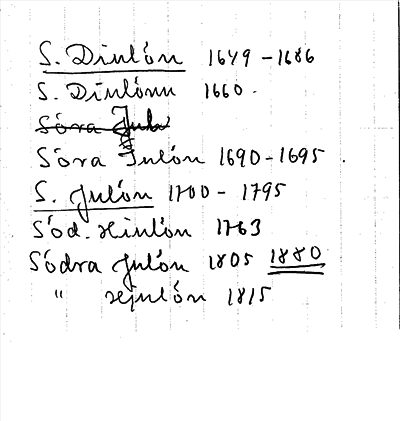 S. Diulón 1649-1686
S. Diulónu 1660.
Sóra Jula
Sóra Julón 1690-1695.
S. Julón 1700-1795
Söd. Hiulón 1763
Södra Julón 1805 1880
" Hjulón 1815